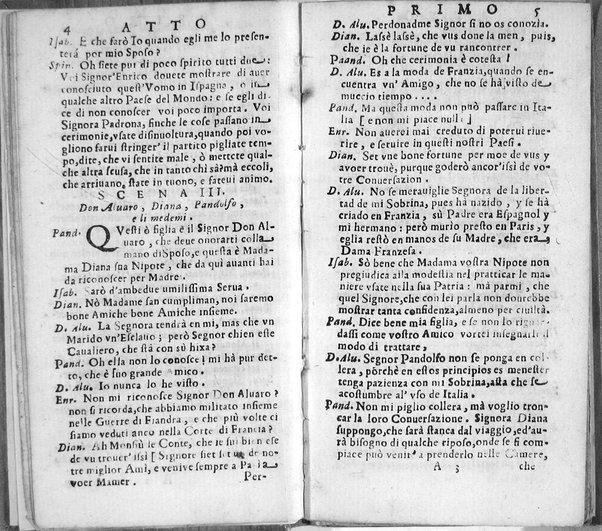 4 ATTO
Isab. E che farò Io quando egli me lo presen-
terá por mio Sposo?
Spin. Oh siete pur di poco spirito tutti due:
Voi Signor'Enrico douete mostrare di auer
conosciuto quest'Vomo in Ispagna, o in
qualche altro Paese del Mondo: e se egli di-
ce di non conoscer voi poco importa. Voi
Signora Padrona, finche le cose passano in
cerimonie, vsate disinuoltura, quando poi vo-
gliono farui stringer' il partito pigliate tem-
po, dite, che vi sentite male, ò mettete qual-
che altra scusa, che in tanto chi sà? mà eccoli,
che arriuano, state in tuono, e fateui animo.
SCENA III.
Don Aluaro, Diana, Pandolfo,
e li medemi.
Pand. QVesti è figlia è il Signor Don Al-
uaro, che deue onorarti colla
mano di Sposo, e questa è Mada-
ma Diana sua Nipote, che da quì auanti hai
da riconoscer per Madre.
Isab. Sarò d'ambedue umilissima Serua.
Dian. Nò Madame san cumpliman, noi saremo
bone Amiche bone Amiche insieme.
D. Alu. La Segnora tendrà en mi, mas che vn
Marido vn'Esclauo; però Segnor chien este
Caualiero, che stà con sù hixa?
Pand. Oh ella non lo conosce! mi hà pur det-
to, che è suo grande Amico.
D. Alu. Io nunca lo he visto.
Enr. Non mi riconosce Signor Don Aluaro?
non si ricorda, che abbiamo militato insieme
nelle Guerre di Fiandra, e che più volte ci
siamo veduti anco nella Corte di Francia?
Dian. Ah Monsiù le Conte, che ie sui bien ese
de vu trouer'issi [ Signore siet de no-
tre miglior Ami, e venive sempre a Paria
voer Mamer. Per-
PRIMO 5
D. Alu. Perdonadme Signor si no os conozia.
Dian. Lassè lassè, che vus done la men, puis,
che ie è la fortune de vu rancontrer.
Paand. Oh che cerimonia è cotesta!
D. Alu. Es a la moda de Franzia, quando se en-
cuentra vn' Amigo, che no se hà visto de
muccio tiempo...
Pand. Ma questa moda non può passare in Ita-
lia [ e non mi piace nulla ]
Enr. Non auerei mai creduto di poterui riue-
rire, e seruire in questi nostri Paesi.
Dian. Set vne bone fortune per moe de vus y
avoer trouè, purque goderò ancor'issi de vo-
tre Conuersazion.
D. Alu. No se merauiglie Segnora de la liber-
tad de mi Sobrina, pues hà nazido, y se hà
criado en Franzia, sù Padre era Espagnol y
mi hermano: però murio presto en Paris, y
eglia restò en manos de su Madre, che era
Dama Franzesa.
Isab. Sò bene che Madama vostra Nipote non
pregiudica alla modestia nel pratticar le ma-
niere vsate nella sua Patria: mà parmi, che
quel Signore, che con lei parla non dourebbe
mostrar tanta confidenza, almeno per ciuiltà.
Pand. Dice bene mia figlia, e se non lo riguar-
dassi come vostro Amico vortei insegnarli il
modo di trattare,
D. Alu. Segnor Pandolfo non se ponga en co-
lera, pòrchè en estos principios es menester
tenga pazienza con mi Sobrina, asta che se
acostumbre al'vso de Italia.
Pand. Non mi piglio collera, mà voglio tron-
car la loro Conuersazione. Signora Diana
suppongo, che sarà stanca dal viaggio, ed'au-
rà bisogno di qualche riposo, onde se si com-
piace può venir' a prenderlo nelle Camere,
A 3 che